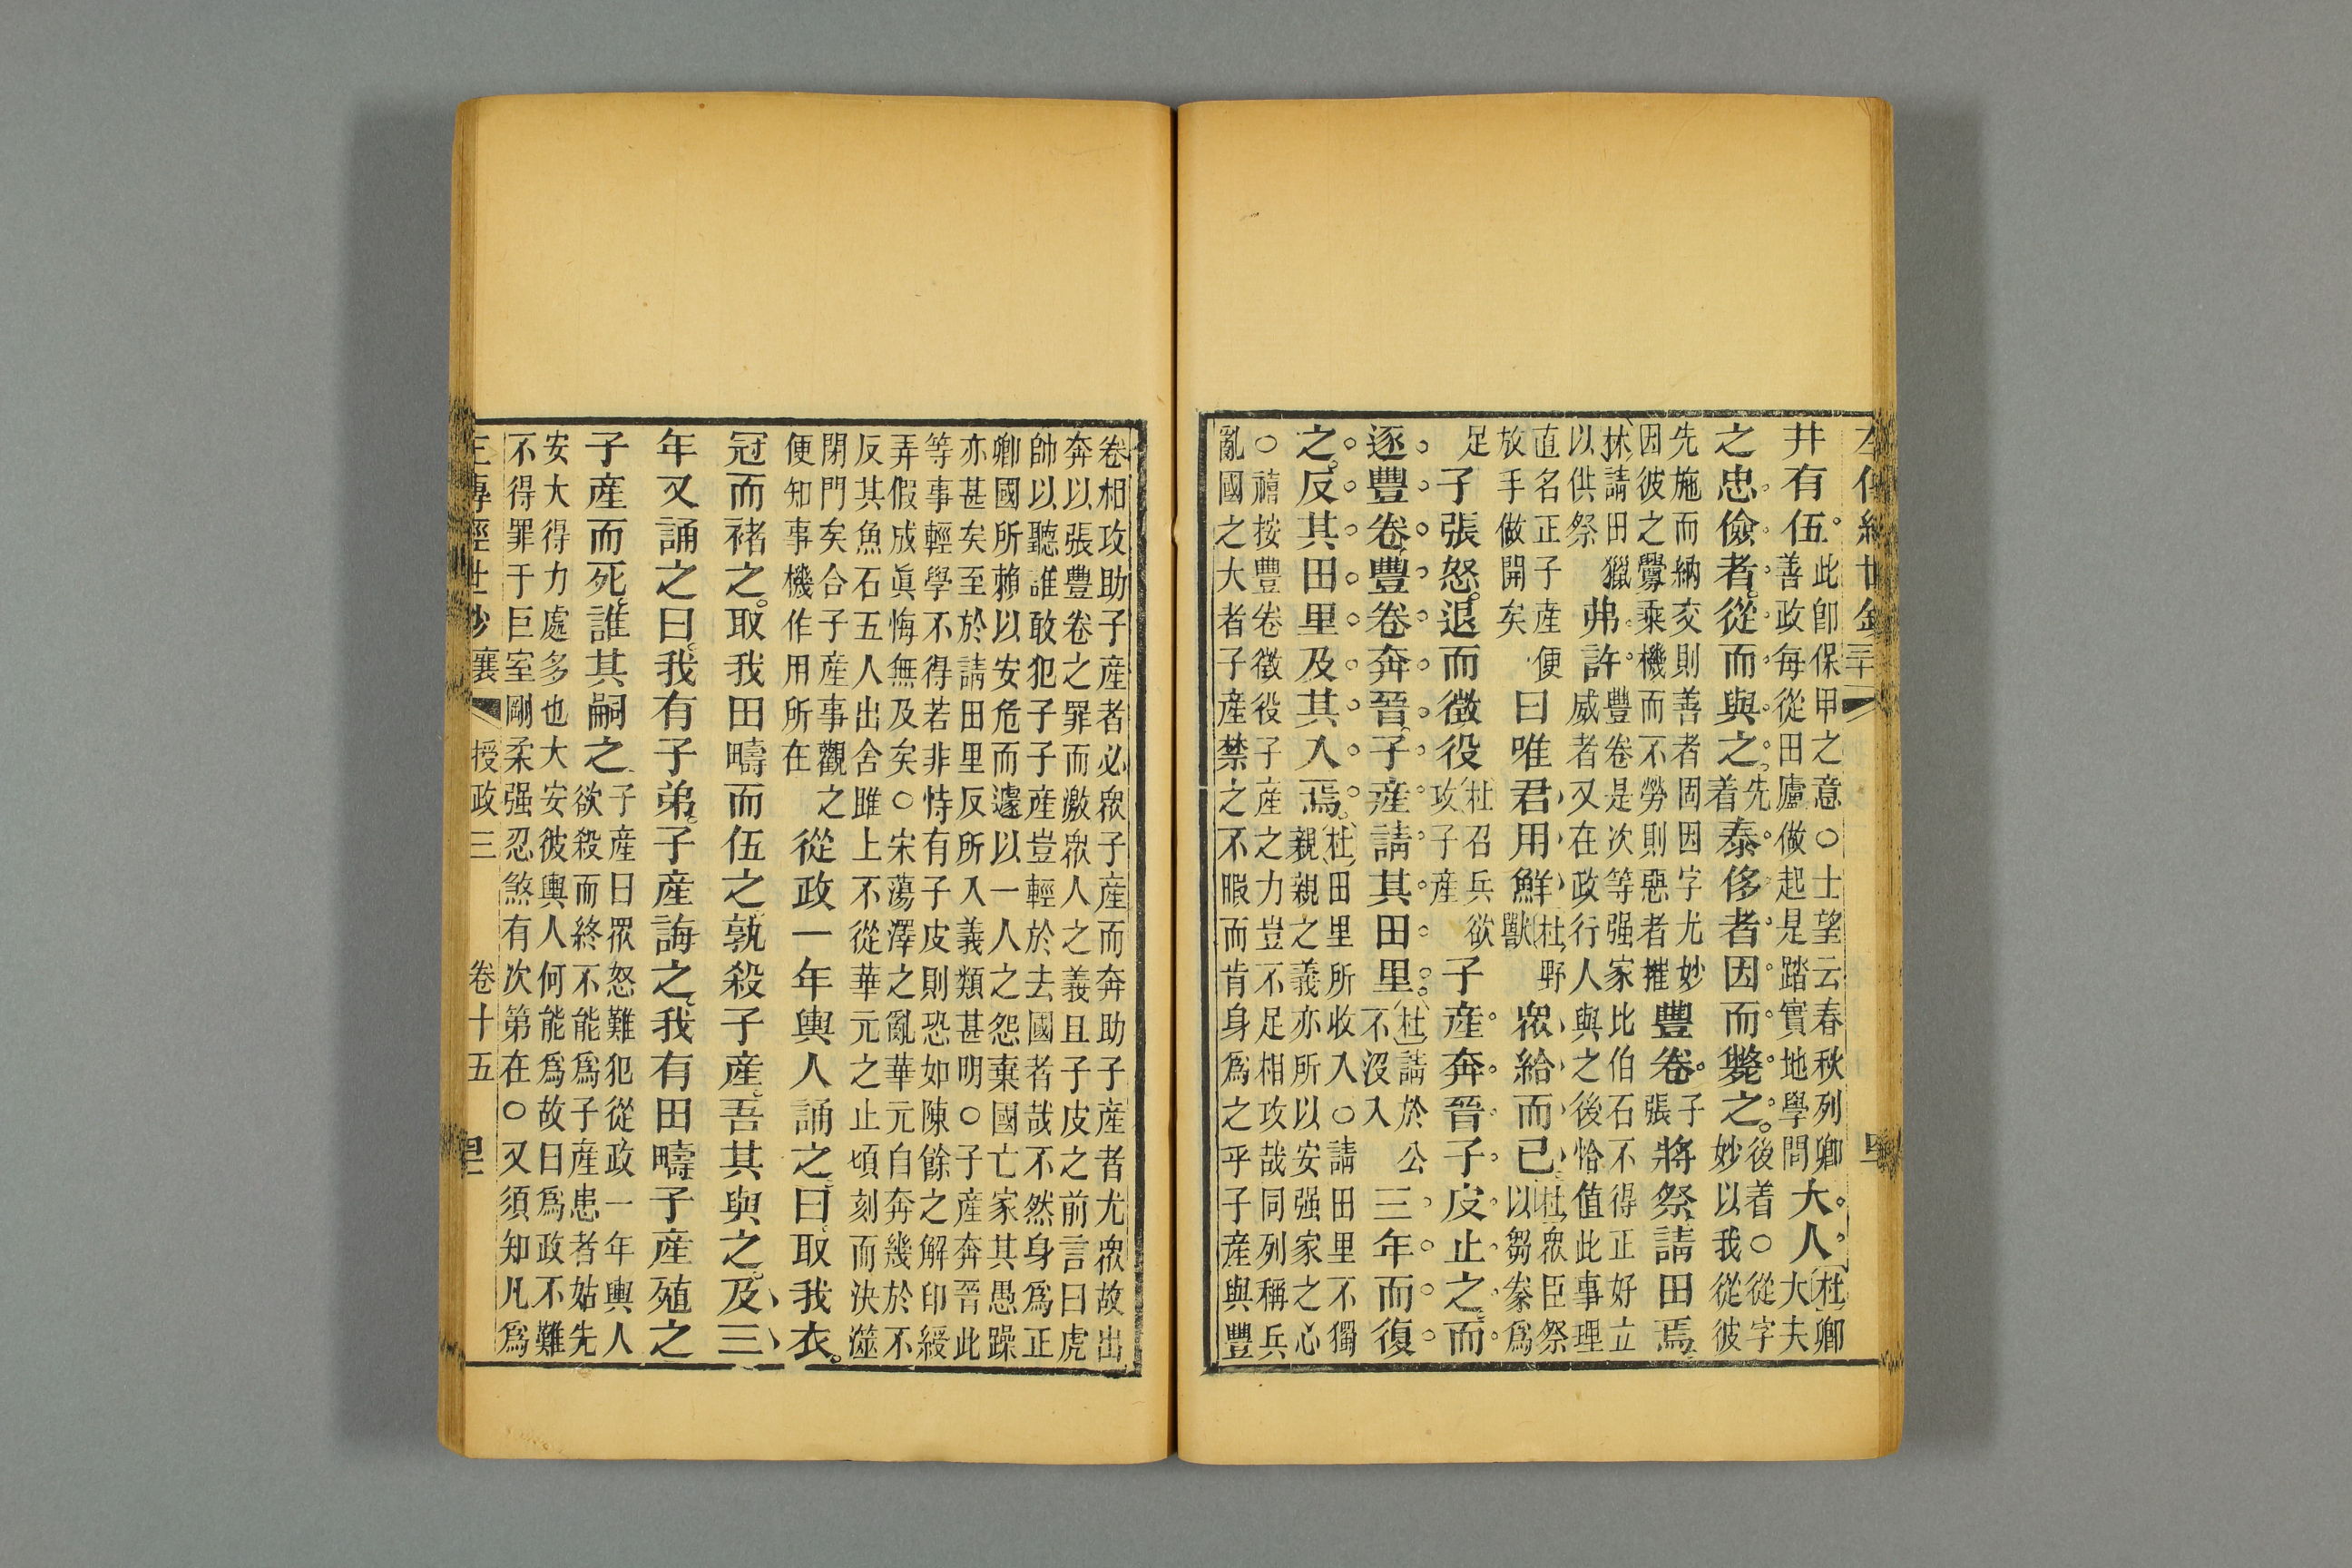 井有伍此卽保甲之意○士望云春秋列卿善政每從田廬做起是踏實地學問大人杜卿大夫
之忠儉者從而與之先着泰侈者因而斃之後着○從字妙以我從彼
先施而納交則善者固因字尤妙因彼之釁乘機而不勞則惡者摧豐卷子張將祭請田焉
杜請田獵以供祭弗許豐卷是次等强家比伯石不得正好立威者又在政行人與之後恰值此事理
直名正子産便放手做開矣曰唯君用鮮杜野獸衆給而已杜衆臣祭以芻豢爲
足子張怒退而徵役杜召兵欲攻子産子産奔晉子皮止之而
逐豐卷豐卷奔晉子産請其田里杜請於公不沒入三年而復
之反其田里及其入焉杜田里所收入○請田里不獨親親之義亦所以安强家之心
○禧按豐卷徵役子産之力豈不足相攻哉同列稱兵
亂國之大者子産禁之不暇而肯身爲之乎子産與豐
卷相攻助子産者必衆子産而奔助子産者尤衆故出
奔以張豐卷之罪而激衆人之義且子皮之前言曰虎
帥以聽誰敢犯子子産豈輕於去國者哉不然身爲正
卿國所賴以安危而遽以一人之怨棄國亡家其愚躁
亦甚矣至於請田里反所入義類甚明○子産奔晉此
等事輕學不得若非恃有子皮則恐如陳餘之解印綬
弄假成眞悔無及矣○宋蕩澤之亂華元自奔幾於不
反其魚石五人出舍雎上不從華元之止頃刻而決澨
閉門矣合子産事觀之便知事機作用所在從政一年輿人誦之曰取我衣
冠而褚之取我田疇而伍之孰殺子産吾其與之及三
年又誦之曰我有子弟子産誨之我有田疇子産殖之
子産而死誰其嗣之子産曰衆怒難犯從政一年輿人欲殺而終不能爲子産患者姑先
安大得力處多也大安彼輿人何能爲故曰爲政不難
不得罪于巨室剛柔强忍煞有次第在○又須知凡爲
經世鈔 襄 授政三 卷十五